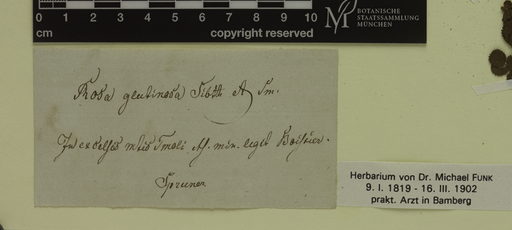 0 1 2 3 4 5 6 7 8 9 10
cm copyright reserved
BOTANISCHE
STAATSSAMMLUNG
MÜNCHEN
Rosa glutinosa Sibth & Sm.
In excelsis mtis Tmoli As. min. legit Boissier.
Spruner
Herbarium von Dr. Michael FUNK
9. I. 1819 - 16. III. 1902
prakt. Arzt in Bamberg